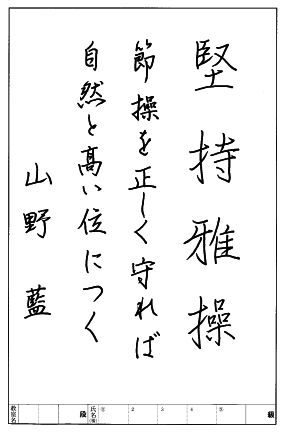 堅持雅操
節操を正しく守れば
自然と高い位につく
山野 藍
教室名 段 氏名㈱ ① 2 3 4 ⑤ 級